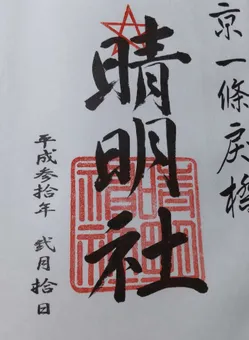 京一條戻橋
晴明社
晴明社
平成参拾年 弐月拾日